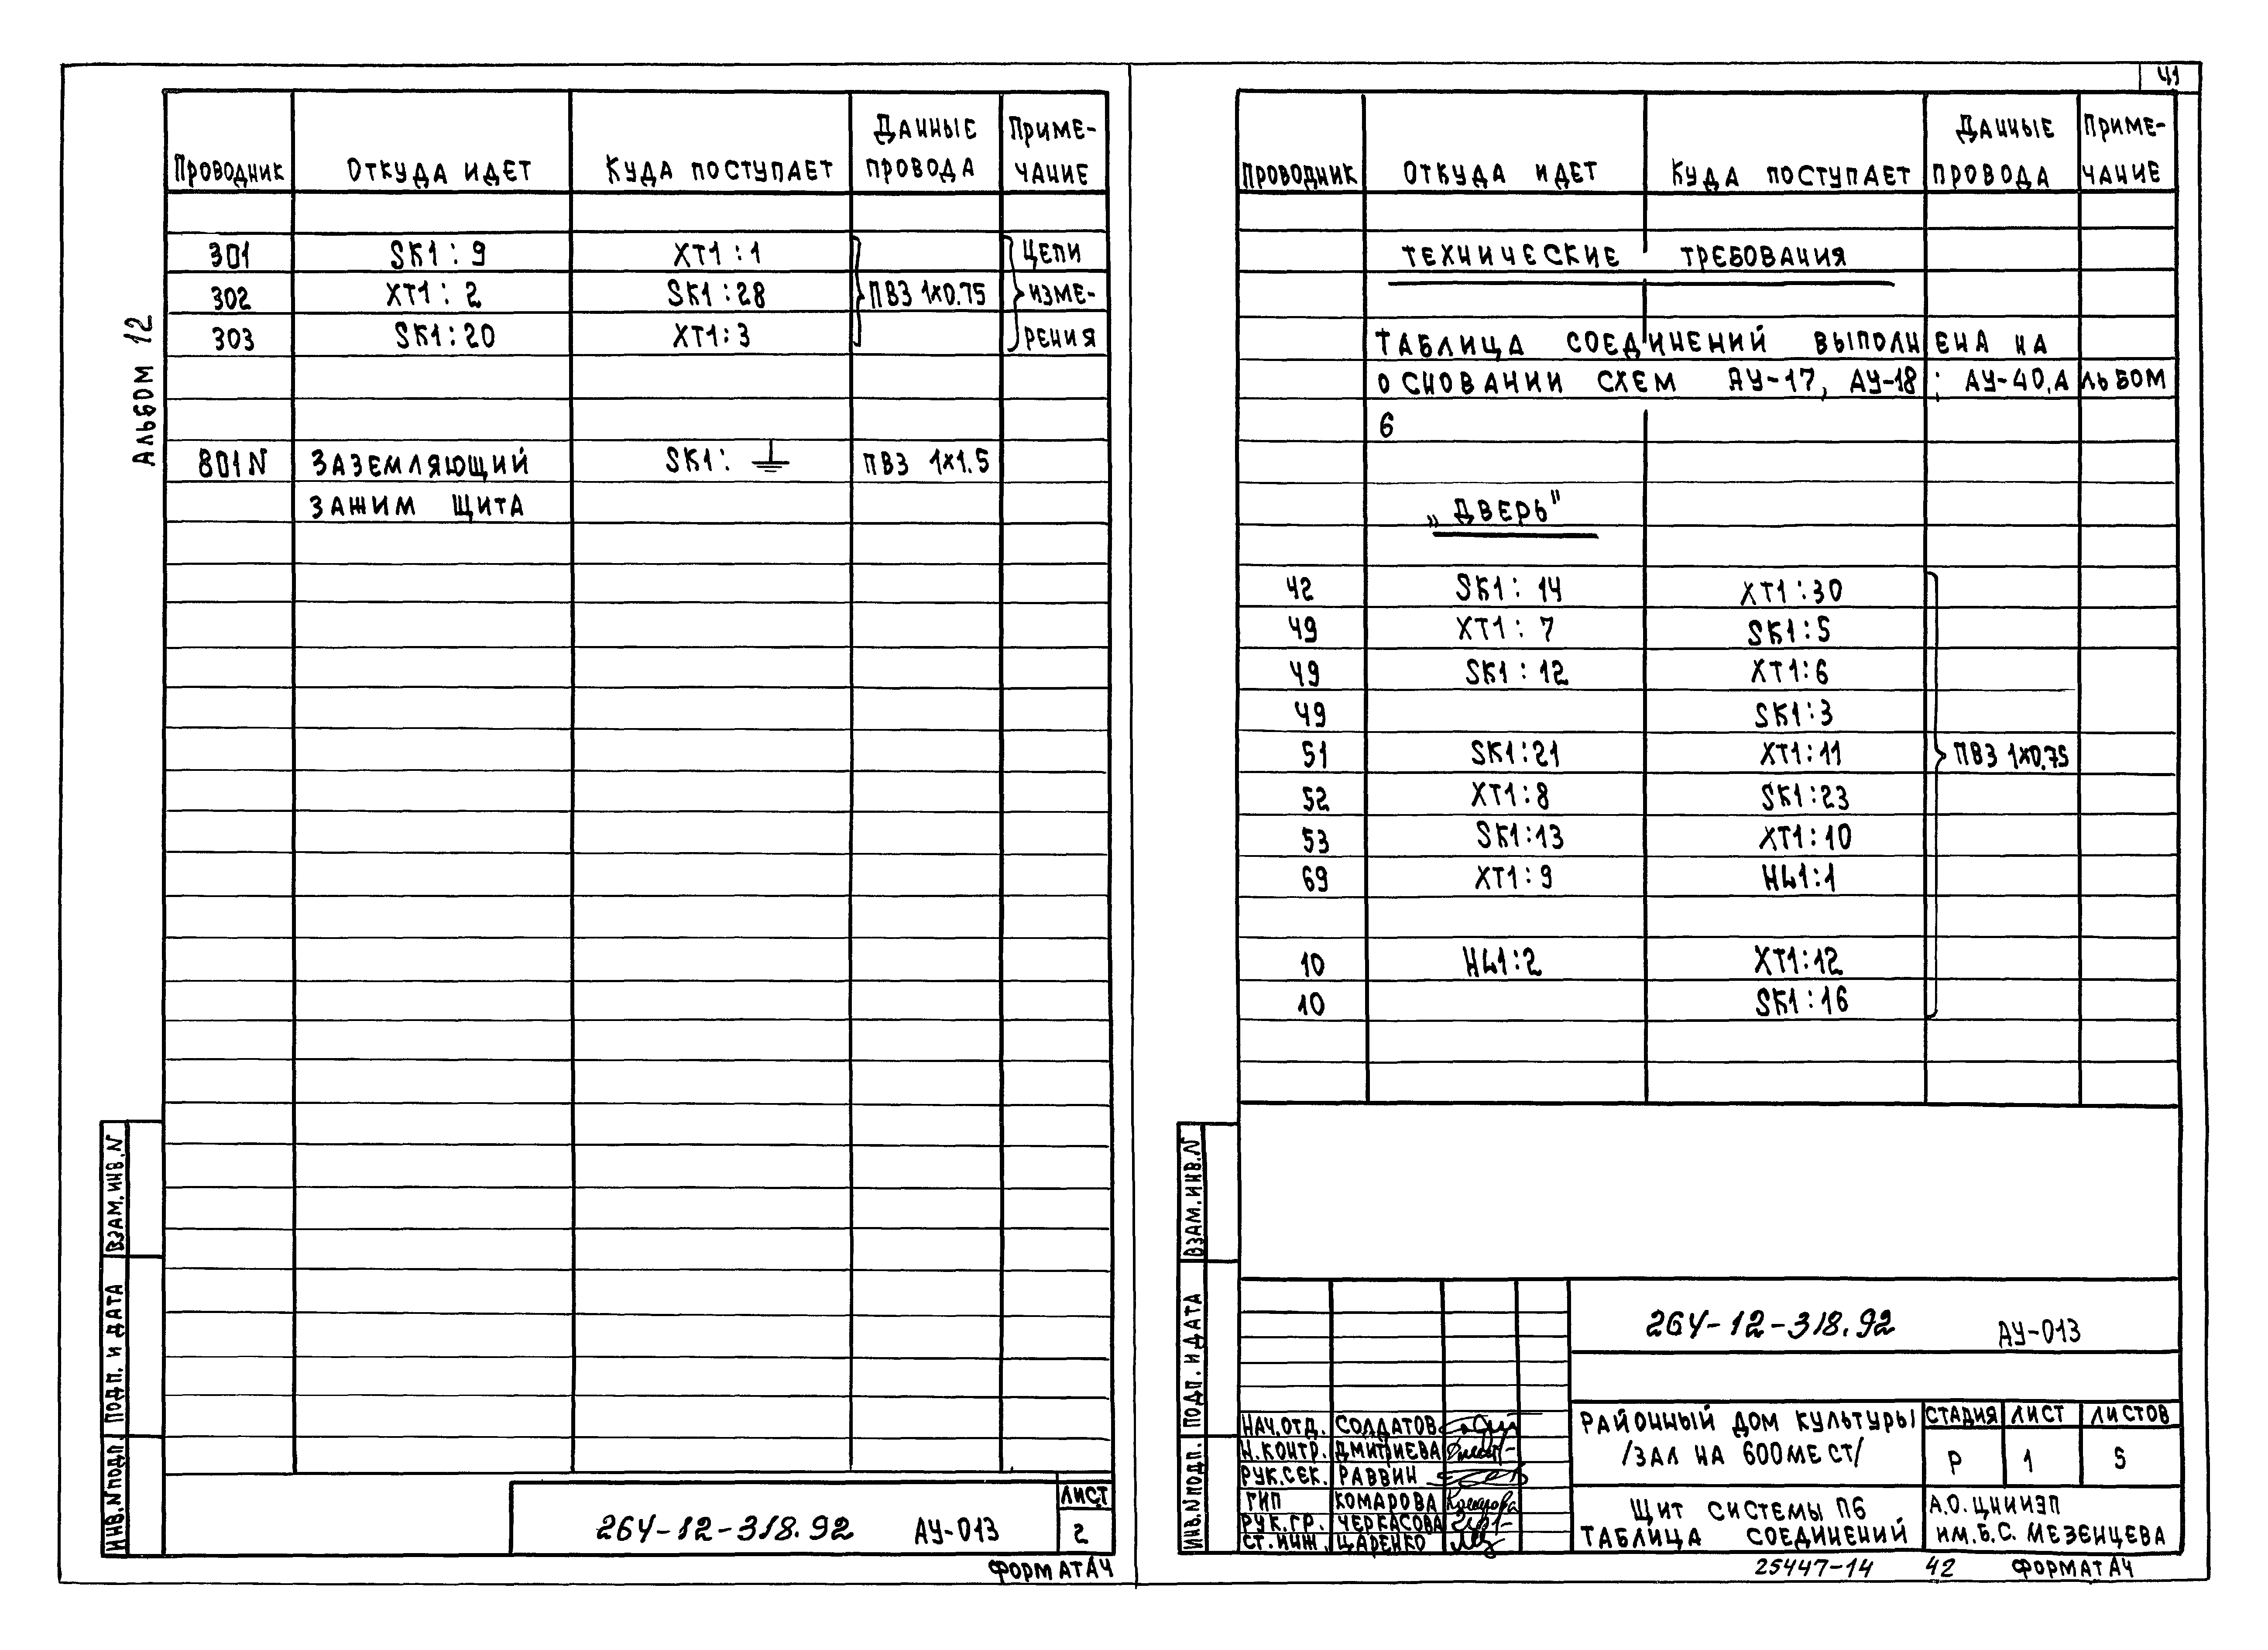 41
АЛЬБОМ 12
ПРОВОДНИК ОТКУДА ИДЕТ КУДА ПОСТУПАЕТ ДАННЫЕ ПРОВОДА ПРИМЕ-ЧАНИЕ
301 SK1:9 XT1:1 ЦЕПИ
302 XT1:2 SK1:28 ПВ3 1х0.75 ИЗМЕ-
303 SK1:20 XT1:3 РЕНИЯ
801N ЗАЗЕМЛЯЮЩИЙ SK1: ⏚ ПВ3 1х1.5
ЗАЖИМ ЩИТА
ВЗАМ.ИНВ.N
ПОДП. И ДАТА
ИНВ.N ПОДЛ.
264-12-318.92 АУ-013
ЛИСТ
2
ФОРМАТ А4
ПРОВОДНИК ОТКУДА ИДЕТ КУДА ПОСТУПАЕТ ДАННЫЕ ПРОВОДА ПРИМЕ-ЧАНИЕ
ТЕХНИЧЕСКИЕ ТРЕБОВАНИЯ
ТАБЛИЦА СОЕДИНЕНИЙ ВЫПОЛНЕНА НА
ОСНОВАНИИ СХЕМ АУ-17, АУ-18; АУ-40, АЛЬБОМ
6
„ДВЕРЬ"
42 SK1:14 XT1:30
49 XT1:7 SK1:5
49 SK1:12 XT1:6
49 SK1:3
51 SK1:21 XT1:11 ПВ3 1х0.75
52 XT1:8 SK1:23
53 SK1:13 XT1:10
69 XT1:9 HL1:1
10 HL1:2 XT1:12
10 SK1:16
ВЗАМ.ИНВ.N
ПОДП. И ДАТА
ИНВ.N ПОДЛ.
264-12-318.92 АУ-013
НАЧ.ОТД. СОЛДАТОВ
Н.КОНТР. ДМИТРИЕВА
РУК.СЕК. РАВВИН
ГИП КОМАРОВА
РУК.ГР. ЧЕРКАСОВА
СТ.ИНЖ. ЦАРЕНКО
РАЙОННЫЙ ДОМ КУЛЬТУРЫ
/ЗАЛ НА 600 МЕСТ/
СТАДИЯ ЛИСТ ЛИСТОВ
Р 1 5
ЩИТ СИСТЕМЫ П6
ТАБЛИЦА СОЕДИНЕНИЙ
А.О.ЦНИИЭП
ИМ.Б.С. МЕЗЕНЦЕВА
25447-14 42 ФОРМАТ А4